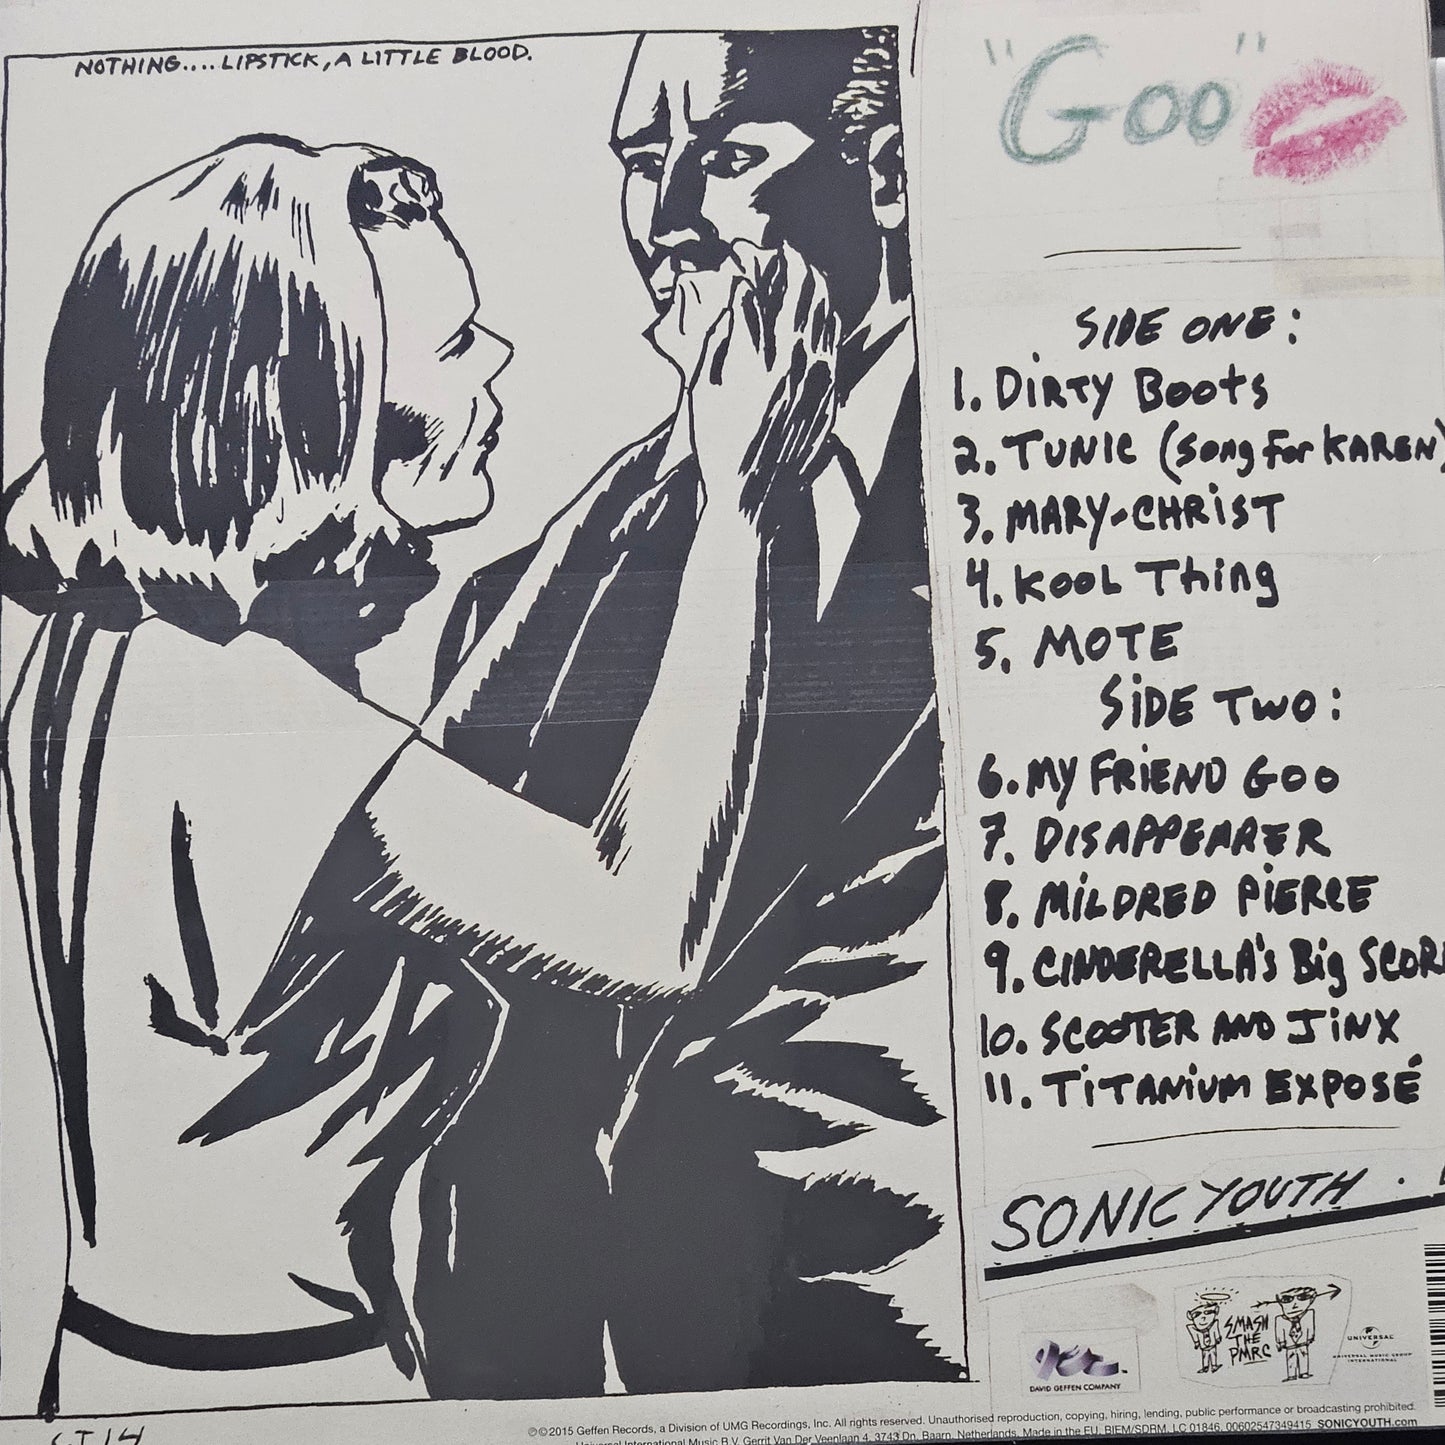 NOTHING.... LIPSTICK, A LITTLE BLOOD.
"Goo"
SIDE ONE:
1. DIRTY BOOtS
2. TUNIC (Song For KAREN)
3. MARY-CHRIST
4. KOOL THing
5. MOTE
SIDE TWO:
6. MY FRIEND GOO
7. DISAPPEARER
8. MILDRED PIERCE
9. CINDERELLA'S Big SCORE
10. SCOOTER AND JINX
11. TITANIUM EXPOSÉ
SONIC YOUTH .
SMASH
THE
PMRC
DAVID GEFFEN COMPANY
UNIVERSAL
UNIVERSAL MUSIC GROUP
INTERNATIONAL
℗©2015 Geffen Records, a Division of UMG Recordings, Inc. All rights reserved. Unauthorised reproduction, copying, hiring, lending, public performance or broadcasting prohibited.
Universal International Music B.V. Gerrit Van Der Veenlaan 4, 3743 Dn, Baarn, Netherlands. Made in the EU. BIEM/SDRM. LC 01846. 00602547349415 SONICYOUTH.com